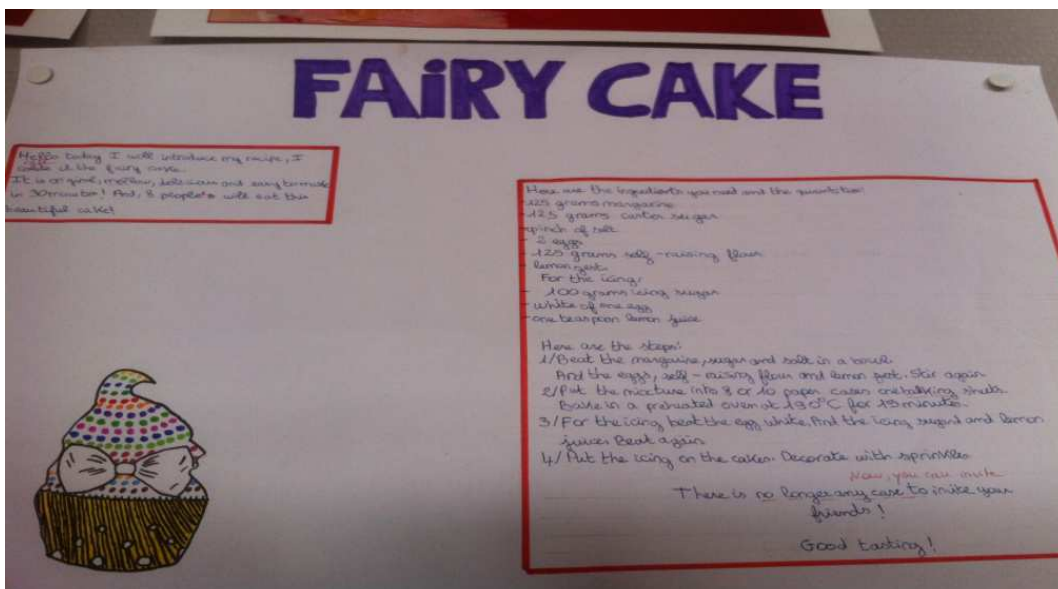 FAiRY CAKE
Hello today I will introduce my recipe, I
it the fairy cake.
It is original, mellow, delicious and easy to make
in 30 minutes! And, 8 people's will eat this
beautiful cake!
Here are the ingredients you need and the quantities:
-125 grams margarine
-125 grams caster sugar
-pinch of salt
- 2 eggs
- 125 grams self-raising flour
- lemon zest.
For the icing:
- 100 grams icing sugar
- white of one egg
- one teaspoon lemon juice
Here are the steps:
1/Beat the margarine, sugar and salt in a bowl.
And the eggs, self-raising flour and lemon . Stir again
2/Put the mixture into 8 or 10 paper cases on baking .
Bake in a preheated oven at 190°C for 15 minutes.
3/For the icing beat the egg white. And the icing sugar and lemon
juice. Beat again
4/Put the icing on the cakes. Decorate with sprinkles
Now, you can invite
There is no longer any case to invite your
friends!
Good tasting!